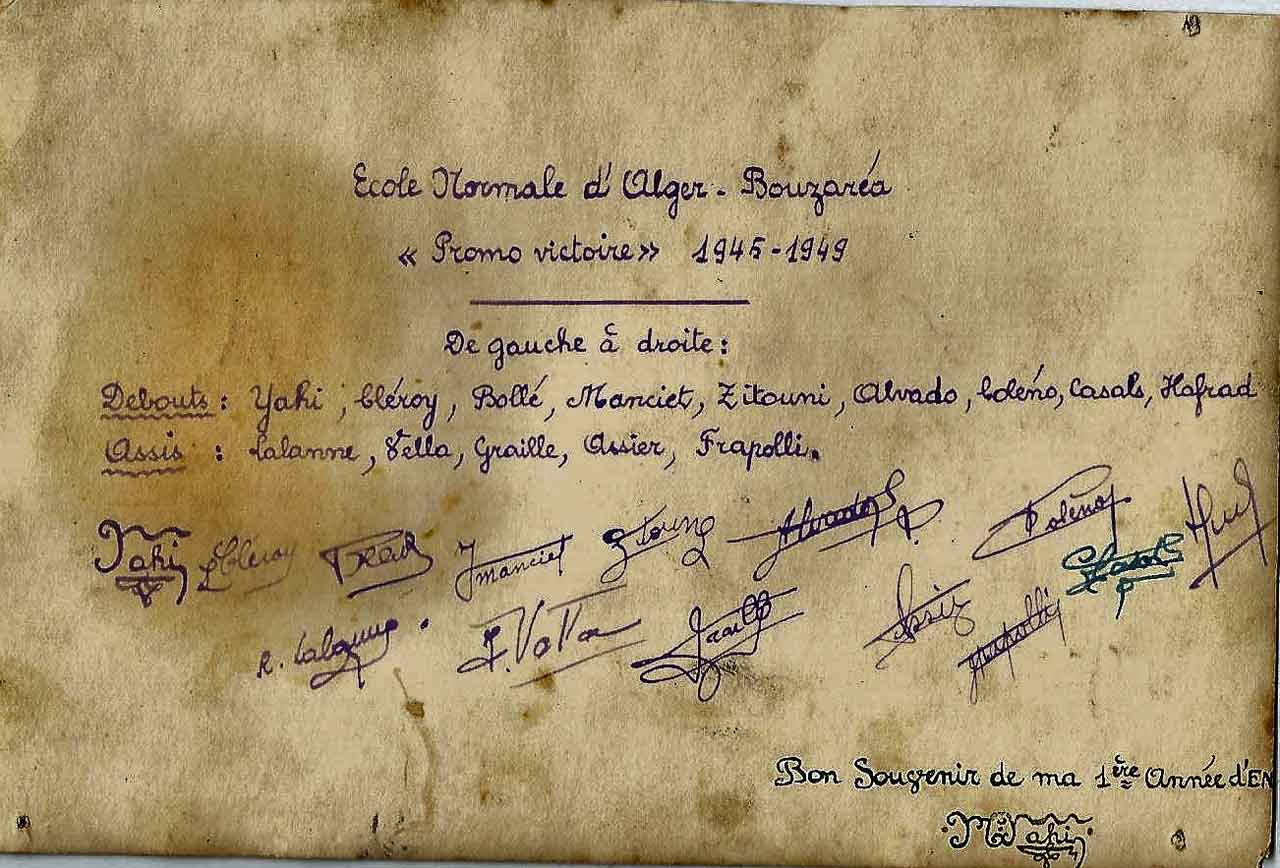 Ecole Normale d'Alger - Bouzaréa
« Promo victoire » 1945-1949
De gauche à droite :
Debouts : Yahi, Cléroy, Bollé, Manciet, Zitouni, Alvado, Coléno, Casals, Hafrad
Assis : Lalanne, Vella, Graille, Assier, Frapolli.
Yahi Cléroy Jmanciet Zitouni Alvado Coléno Casals
R. Lalanne F. Vella Graille Assier Frapolli
Bon Souvenir de ma 1ère Année d'EN
M Yahi